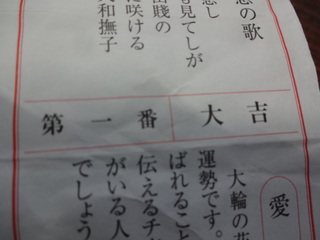 恋の歌
恋し
も見てしが
山賤の
に咲ける
大和撫子
第一番 大吉
愛
大輪の花
運勢です。
ばれること
伝えるチ
がいる人
でしょう